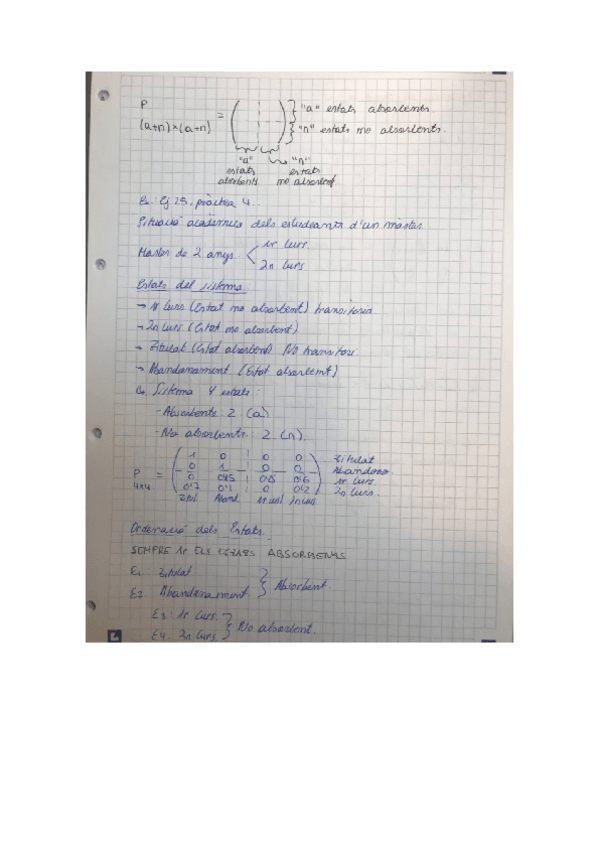 P
(a+n)×(a+n) = ( ) } "a" estats absorbents
} "n" estats no absorbents.
"a" "n"
estats estats
absorbents no absorbents
Ex: Ej 25. pràctica 4.
Situació acadèmica dels estudiants d'un màster.
Master de 2 anys < 1r curs
2n curs
Estats del sistema
→ 1r curs (Estat no absorbent) transitoria
→ 2n curs. (Estat no absorbent)
→ Titulat (Estat absorbent) No transitori.
→ Abandonament (Estat absorbent)
Sistema 4 estats:
- Absorbents 2 (a)
- No absorbents: 2 (n).
1 0 0 0 Titulat
0 1 0 0 Abandono.
P = 0 0'25 0'15 0'6 1r curs.
4x4 0'7 0'1 0 0'2 2n curs.
Titul. Aband. 1r curs 2n curs
Ordenació dels Estats.
SEMPRE 1r ELS ESTATS ABSORBENTS
E1 Titulat
E2 Abandonament } Absorbent
E3: 1r curs.
E4. 2n curs } No absorbent.